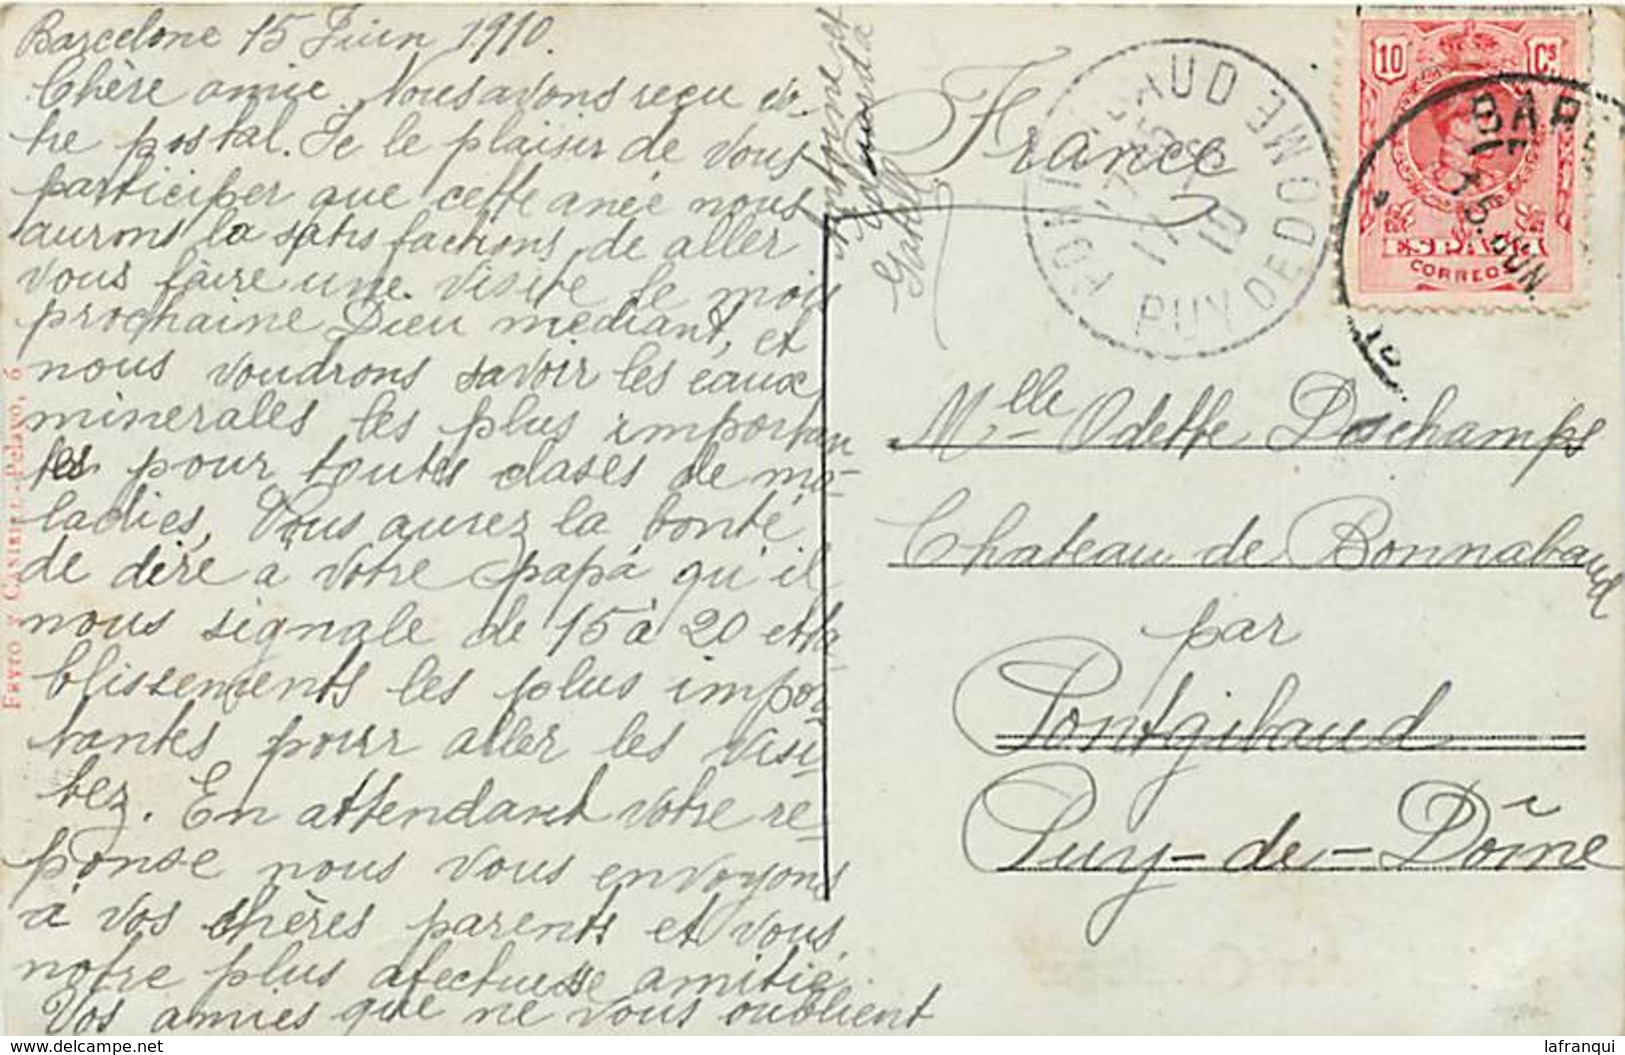 Barcelone 15 Juin 1910.
Chère amie. Nous avons reçu vo-
tre postal. Je le plaisir de vous
participer que cette anée nous
aurons la satisfactions de aller
vous faire une visite le mois
prochaine Dieu mediant, et
nous voudrons savoir les eaux
minerales les plus importan
tes pour toutes clases de ma-
ladies, Vous aurez la bonté
de dire a votre papá qu'il
nous signale de 15 à 20 etta-
blissements les plus impor
tantes pour aller les visi-
tez. En attendant votre re-
ponse nous vous envoyons
à vos chères parents et vous,
notre plus afectuesse amitié
Vos amies que ne vous oublient
Antonne et
France
Mlle Odette Deschamps
Chateau de Bonnabaud
par
Pontgibaud
Puy-de-Dôme
PUY DE DOME
17
10
10 Cs
ESPAÑA
CORREOS
BAR
15.JUN.
10
Pelayo, 6
lafranqui